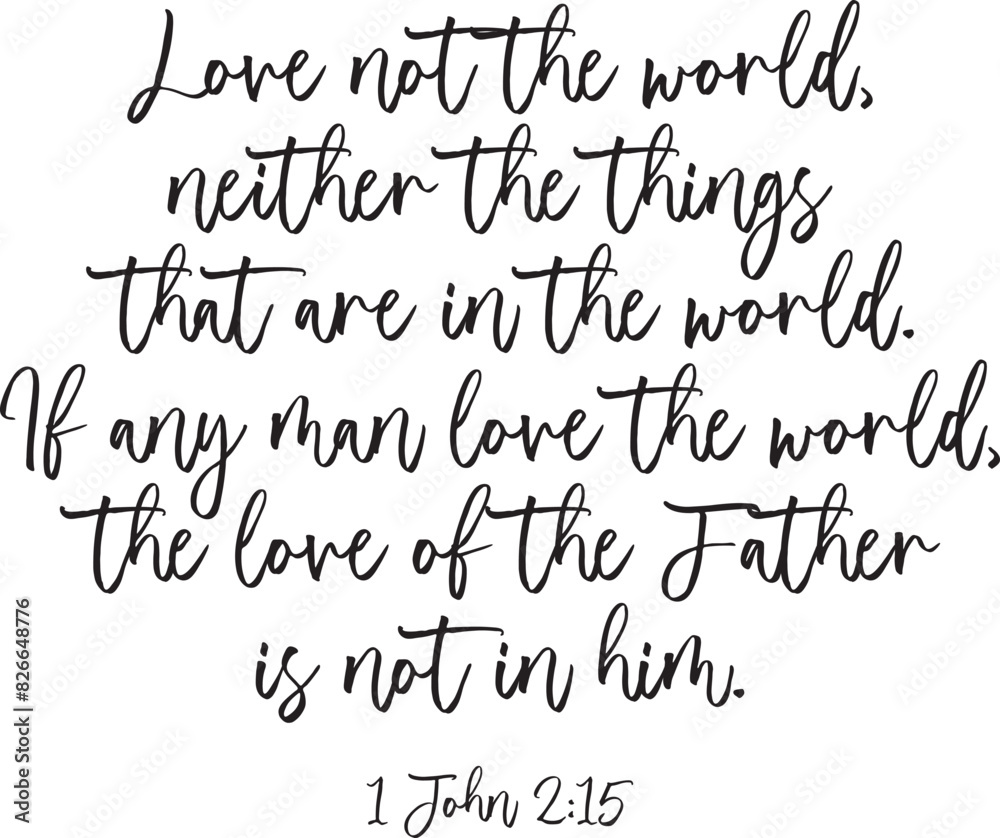 Love not the world,
neither the things
that are in the world.
If any man love the world,
the love of the Father
is not in him.
1 John 2:15
Adobe Stock | #826648776